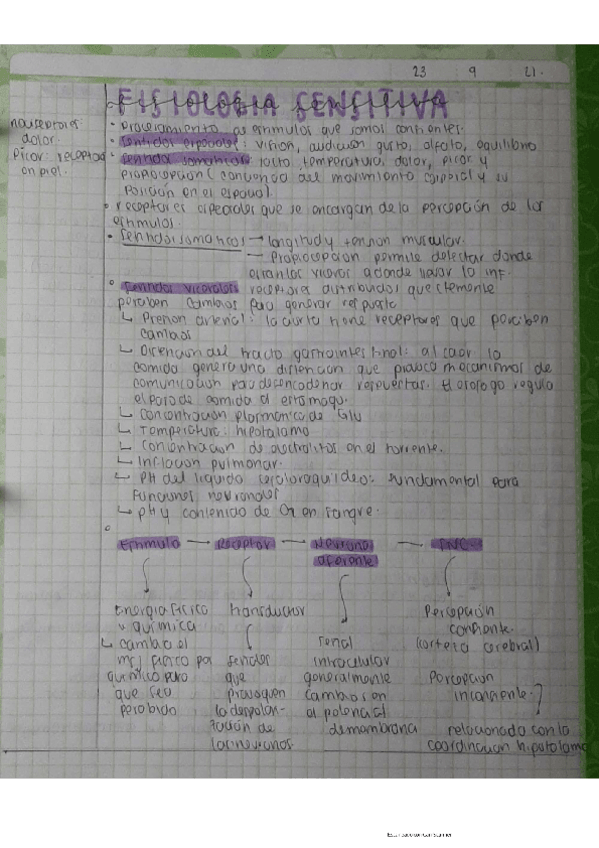 23 9 21.
FISIOLOGIA SENSITIVA
nociceptores:
dolor.
Picor: receptor
en piel.
• Procesamiento de estimulos que somos conscientes.
• Sentidos especiales: vision, audicion gusto, olfato, equilibrio
• Sentidos somaticos: tacto, temperatura, dolor, picor y
propiocepcion (conciencia del movimiento corporal y su
posición en el espacio).
• receptores especiales que se encargan de la percepción de los
estimulos.
• Sentidos somaticos → longitud y tension muscular.
→ Propiocepcion permite detectar donde
estan los visceras a donde llevar la inf.
• Sentidos viscerales receptores distribuidos que
perciben cambios para generar respuesta
↳ Presion arterial: la aorta tiene receptores que perciben
cambios
↳ Distencion del tracto gastrointestinal: al caer la
comida genera una distencion que provoca mecanismos de
comunicación para desencadenar respuestas. El esofago regula
el paso de comida al estomago.
↳ Concentración plasmatica de Glu
↳ Temperatura: hipotalamo
↳ Concentracion de electrolitos en el torrente.
↳ Inflacion pulmonar.
↳ PH del liquido cefaloraquideo: fundamental para
funciones neuronales
↳ pH y contenido de O2 en sangre.
• Estimulo → Receptor → Neurona → SNC
aferente
Energia fisica transductor Percepción
o quimica consciente.
↳ cambia el señal (corteza cerebral)
msj fisico pa señales intracelular
quimico para que generalmente Percepcion
que sea provoquen cambios en inconsciente.
percibido la despolari- el potencial
zación de de membrana relacionado con la
las neuronas. coordinacion hipotalamo
Escaneado con CamScanner